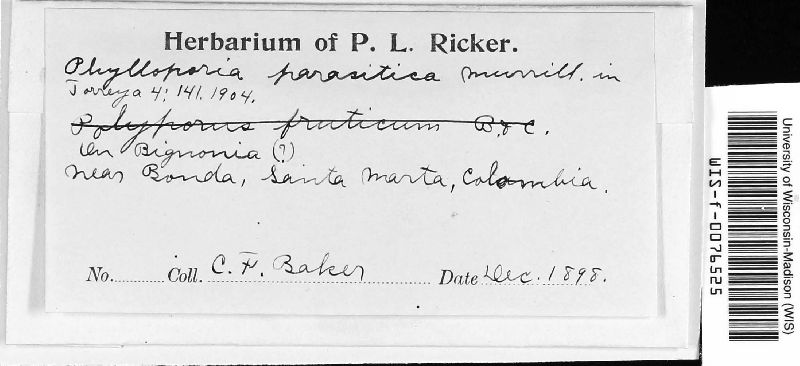 Herbarium of P. L. Ricker.
Phylloporia parasitica Murrill. in
Torreya 4: 141. 1904.
Polyporus fruticum B. & C.
On Bignonia (?)
near Bonda, Santa Marta, Colombia.
No. Coll. C. F. Baker Date Dec. 1898.
WIS-f-0076525
University of Wisconsin-Madison (WIS)